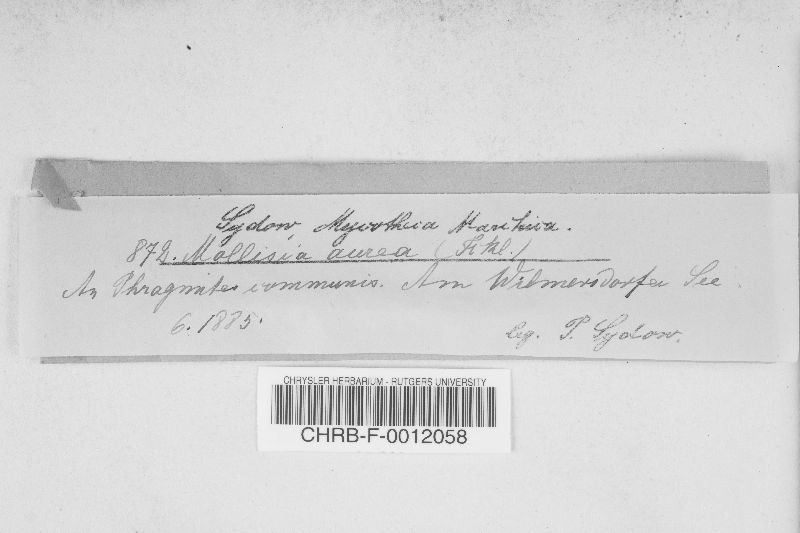 Sydow, Mycotheca Marchica.
872. Mollisia aurea (Fckl.)
An Phragmites communis. Am Wilmersdorfer See.
6. 1885.
leg. P. Sydow.
CHRYSLER HERBARIUM - RUTGERS UNIVERSITY
CHRB-F-0012058